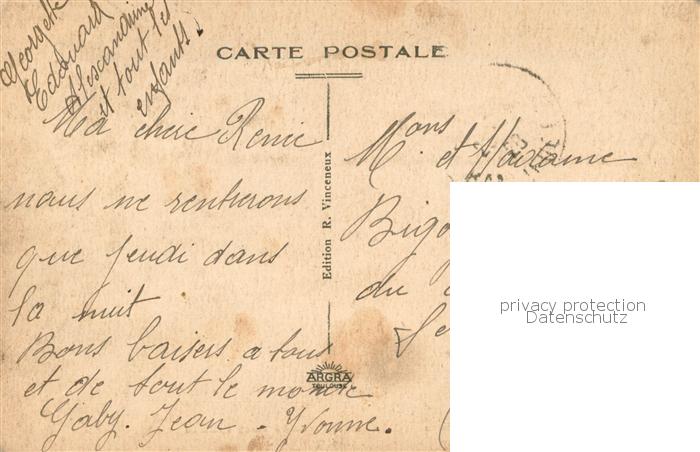 Georgette
Edouard
Alexandrine
et tout les
enfants.
CARTE POSTALE
Ma chère Renée
nous ne rentrerons
que jeudi dans
la nuit
Bons baisers a tous
et de tout le monde
Gaby. Jean - Yvonne.
Edition R. Vinceneux
ARGRA
TOULOUSE
Mons
M. et Madame
du
privacy protection
Datenschutz